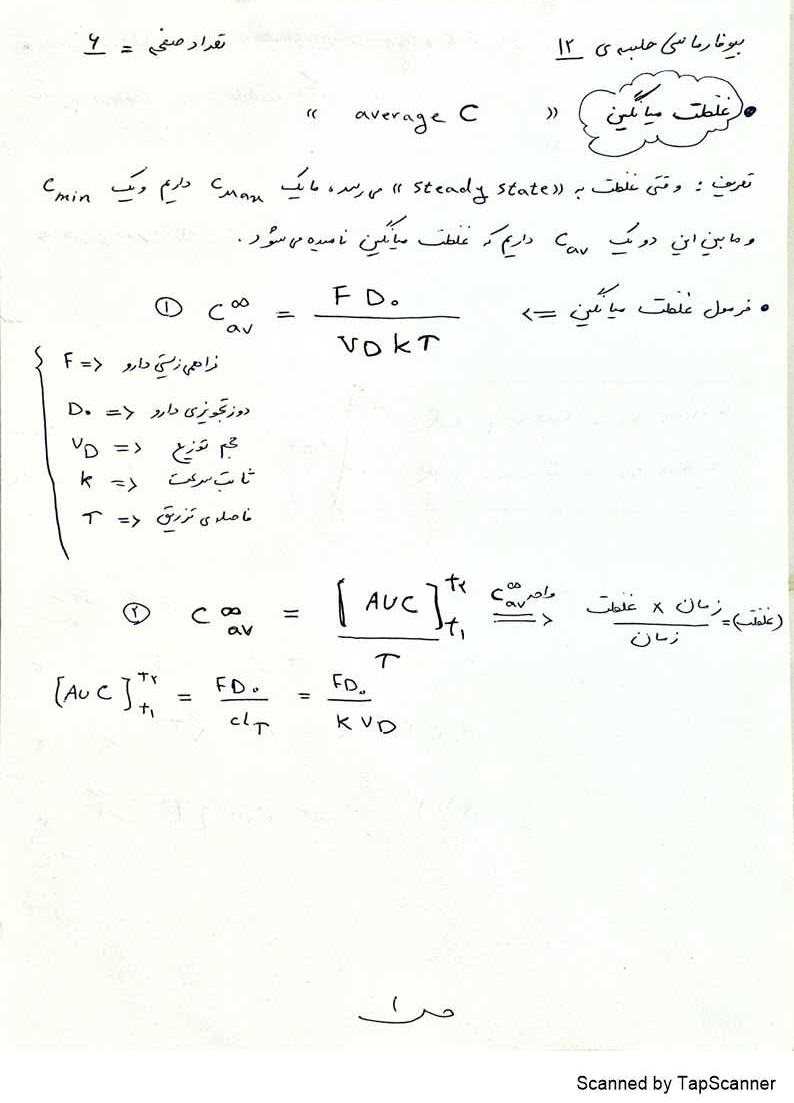 بیوفارماسی جلسه ی ۱۲
تعداد صفحه = ۶
غلظت میانگین « average C »
تعریف : وقتی غلظت به «steady state» می رسد، ما یک Cmax داریم و یک Cmin
و مابین این دو یک Cav داریم که غلظت میانگین نامیده می شود.
• فرمول غلظت میانگین => ① C∞av = F D₀ / VD k T
F => فراهمی زیستی دارو
D₀ => دوز تجویزی دارو
VD => حجم توزیع
k => ثابت سرعت
T => فاصله ی تزریق
② C∞av = [AUC]t₁t₂ / T => واحد C∞av زمان × غلظت / زمان = (غلظت)
[AUC]t₁t₂ = FD₀ / clT = FD₀ / K VD
ص ۱
Scanned by TapScanner